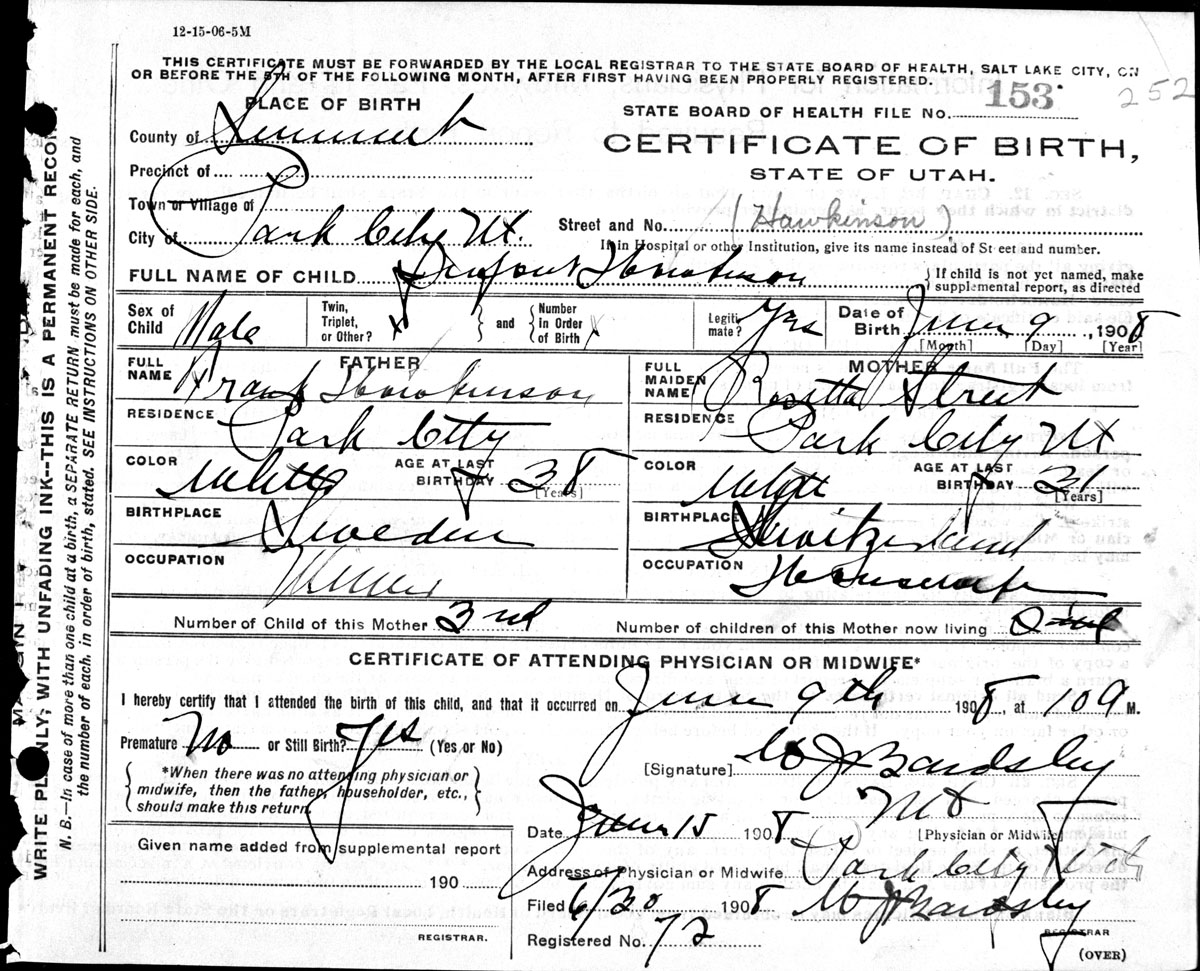 12-15-06-5M
THIS CERTIFICATE MUST BE FORWARDED BY THE LOCAL REGISTRAR TO THE STATE BOARD OF HEALTH, SALT LAKE CITY, ON
OR BEFORE THE 5TH OF THE FOLLOWING MONTH, AFTER FIRST HAVING BEEN PROPERLY REGISTERED.
252
PLACE OF BIRTH
STATE BOARD OF HEALTH FILE No. 153
County of Summit
CERTIFICATE OF BIRTH,
STATE OF UTAH.
Precinct of
Town or Village of
City of Park City Ut.
Street and No. (Hawkinson)
If in Hospital or other Institution, give its name instead of Street and number.
FULL NAME OF CHILD Hawkinson
If child is not yet named, make supplemental report, as directed
Sex of Child Male
Twin, Triplet, or Other? x
and Number in Order of Birth x
Legitimate? Yes
Date of Birth June 9, 1908
[Month] [Day] [Year]
FATHER
FULL NAME Frank Hawkinson
RESIDENCE Park City
COLOR White AGE AT LAST BIRTHDAY 38 [Years]
BIRTHPLACE Sweden
OCCUPATION Miner
MOTHER
FULL MAIDEN NAME Rosetta Street
RESIDENCE Park City Ut
COLOR White AGE AT LAST BIRTHDAY 31 [Years]
BIRTHPLACE Switzerland
OCCUPATION Housewife
Number of Child of this Mother 3rd
Number of children of this Mother now living
CERTIFICATE OF ATTENDING PHYSICIAN OR MIDWIFE*
I hereby certify that I attended the birth of this child, and that it occurred on June 9th 1908, at 10 a M.
Premature No or Still Birth? Yes (Yes or No)
*When there was no attending physician or midwife, then the father, householder, etc., should make this return.
[Signature] W J Bardsley
MD
[Physician or Midwife]
Date June 15 1908
Given name added from supplemental report
190
REGISTRAR.
Address of Physician or Midwife Park City Utah
Filed 6/30 1908 W J Bardsley
REGISTRAR
Registered No. 72
(OVER)
MARGIN
WRITE PLAINLY, WITH UNFADING INK--THIS IS A PERMANENT RECORD.
N. B.—In case of more than one child at a birth, a SEPARATE RETURN must be made for each, and
the number of each, in order of birth, stated. SEE INSTRUCTIONS ON OTHER SIDE.